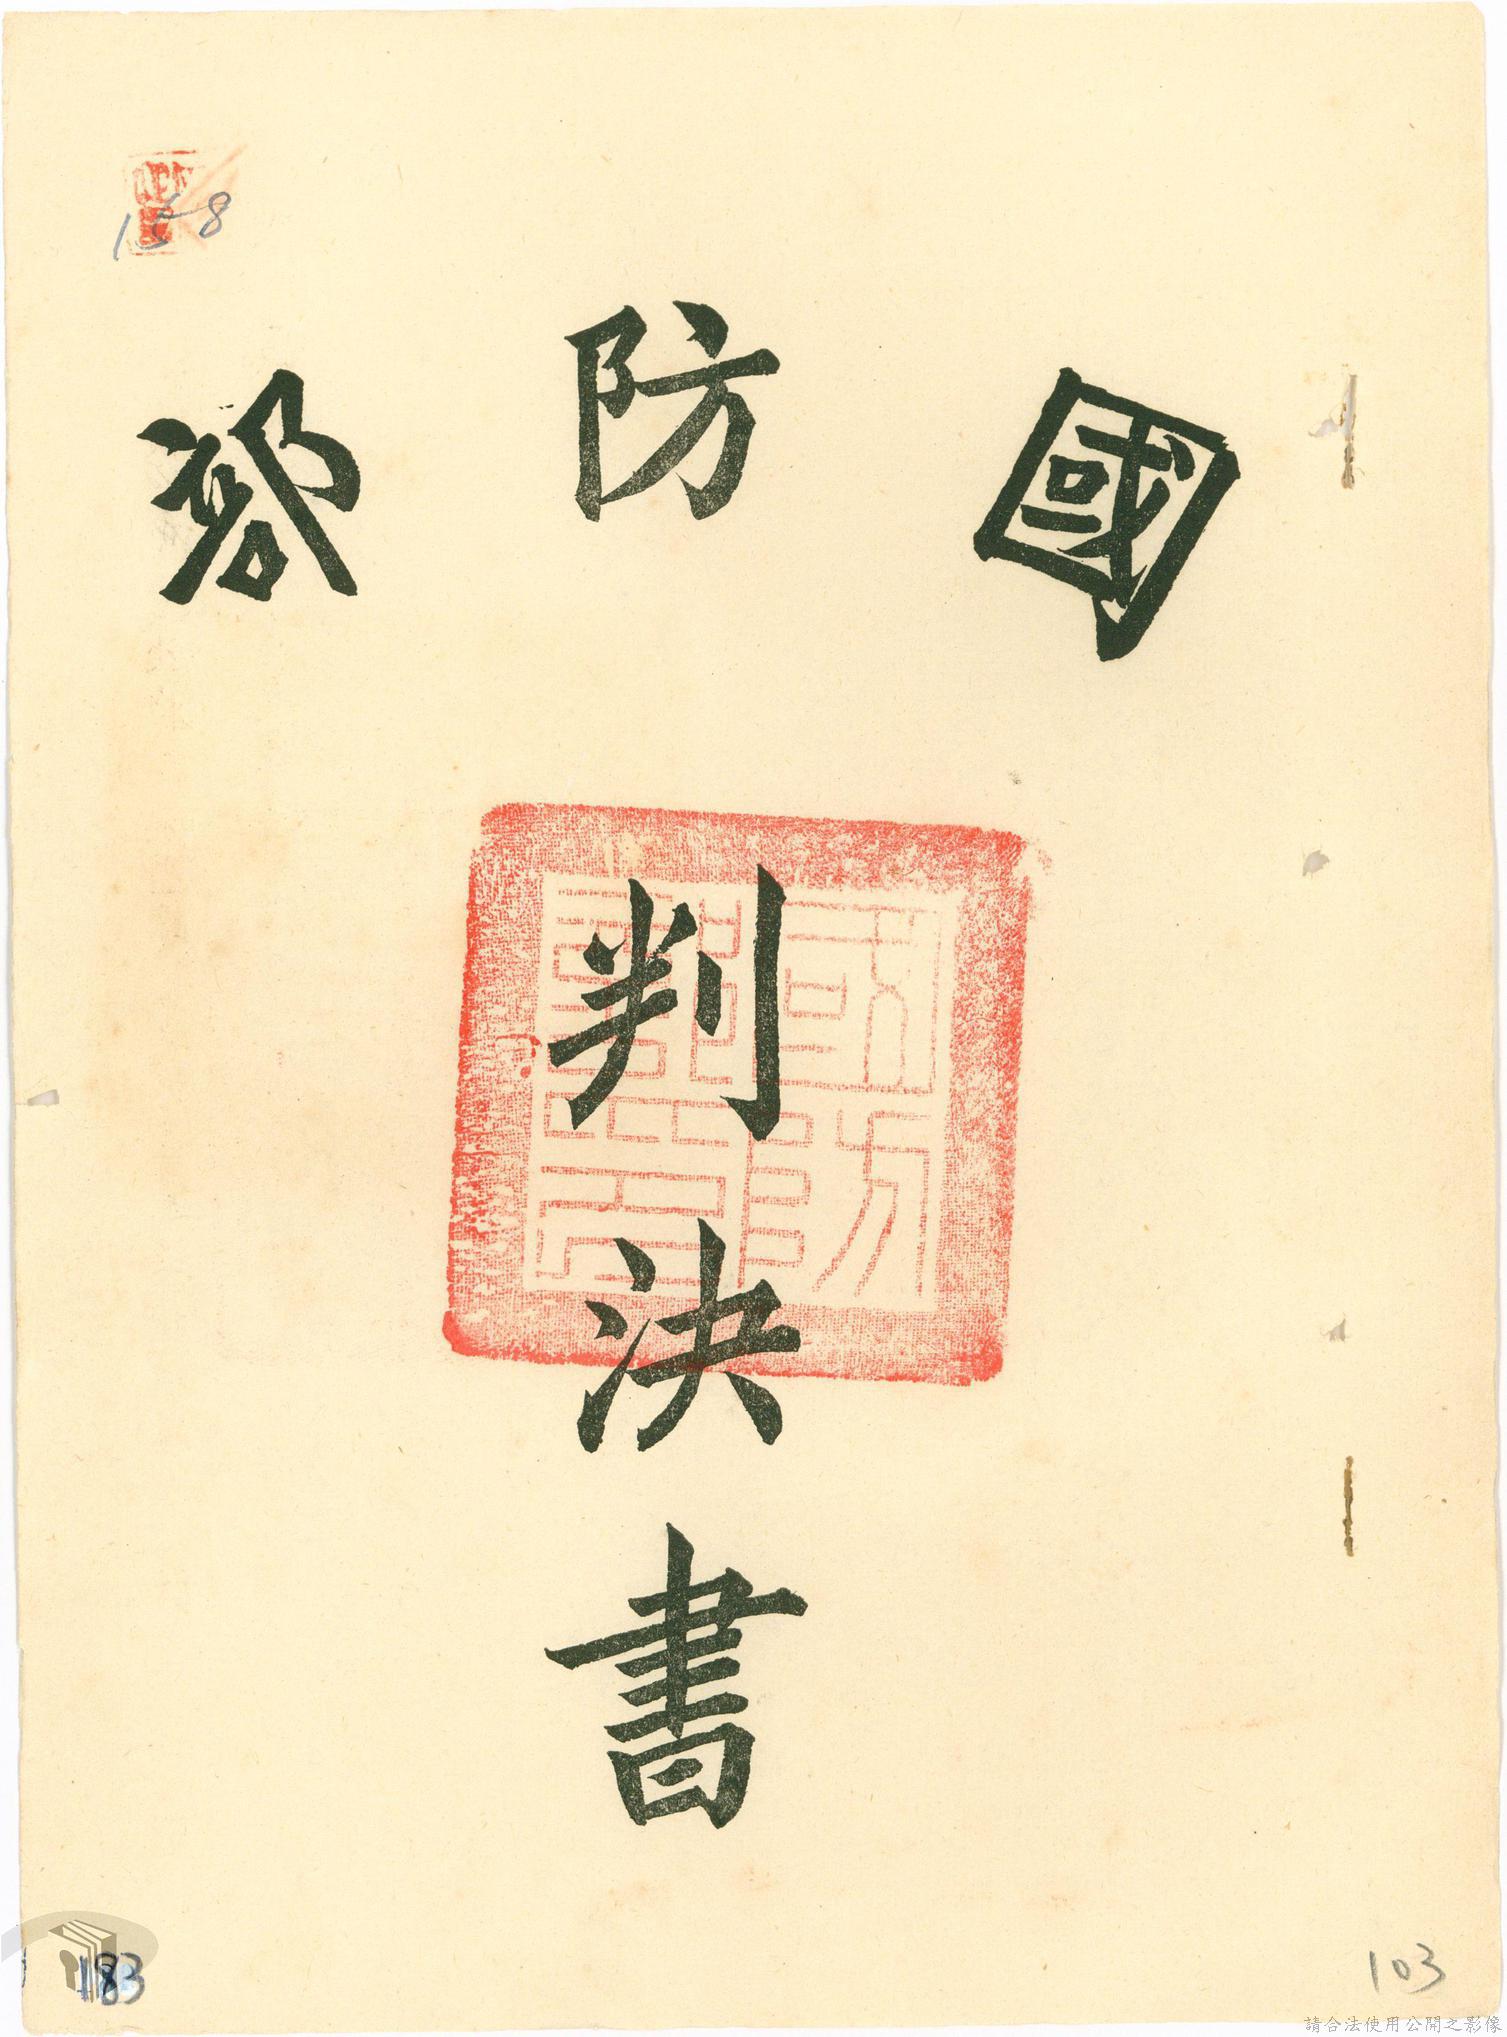 國防部
判決書
158
183
103
請合法使用公開之影像